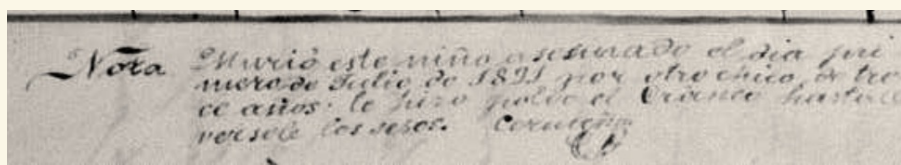 Nota Murió este niño asesinado el dia pri
mero de Julio de 1891 por otro chico de tre
ce años. le hizo polvo el Craneo hasta
versele los sesos. Cermeño